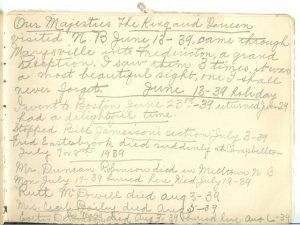 Our Majesties The King and Queen
visited N B June 13 - 39. came through
Marysville into Fredericton, a grand
reception, I saw them 3 times, it was
a most beautiful sight, one I shall
never forget. June 13-39 holiday
I went to Boston June 23rd-39 returned
had a delightful time.
Stopped Bill Jamerson's section July 3-39
Fred Easterbrook died suddenly at Campbellton
July 7 or 8th 1939
Mrs. Duncan Robinson died in Milltown N B
July 17-39 buried here Wed July 19-39
Ruth McDowell died Aug 3-39
Mrs. Cecil Bailey died Aug 5-39
died Aug 5-39 buried here Aug 6-39